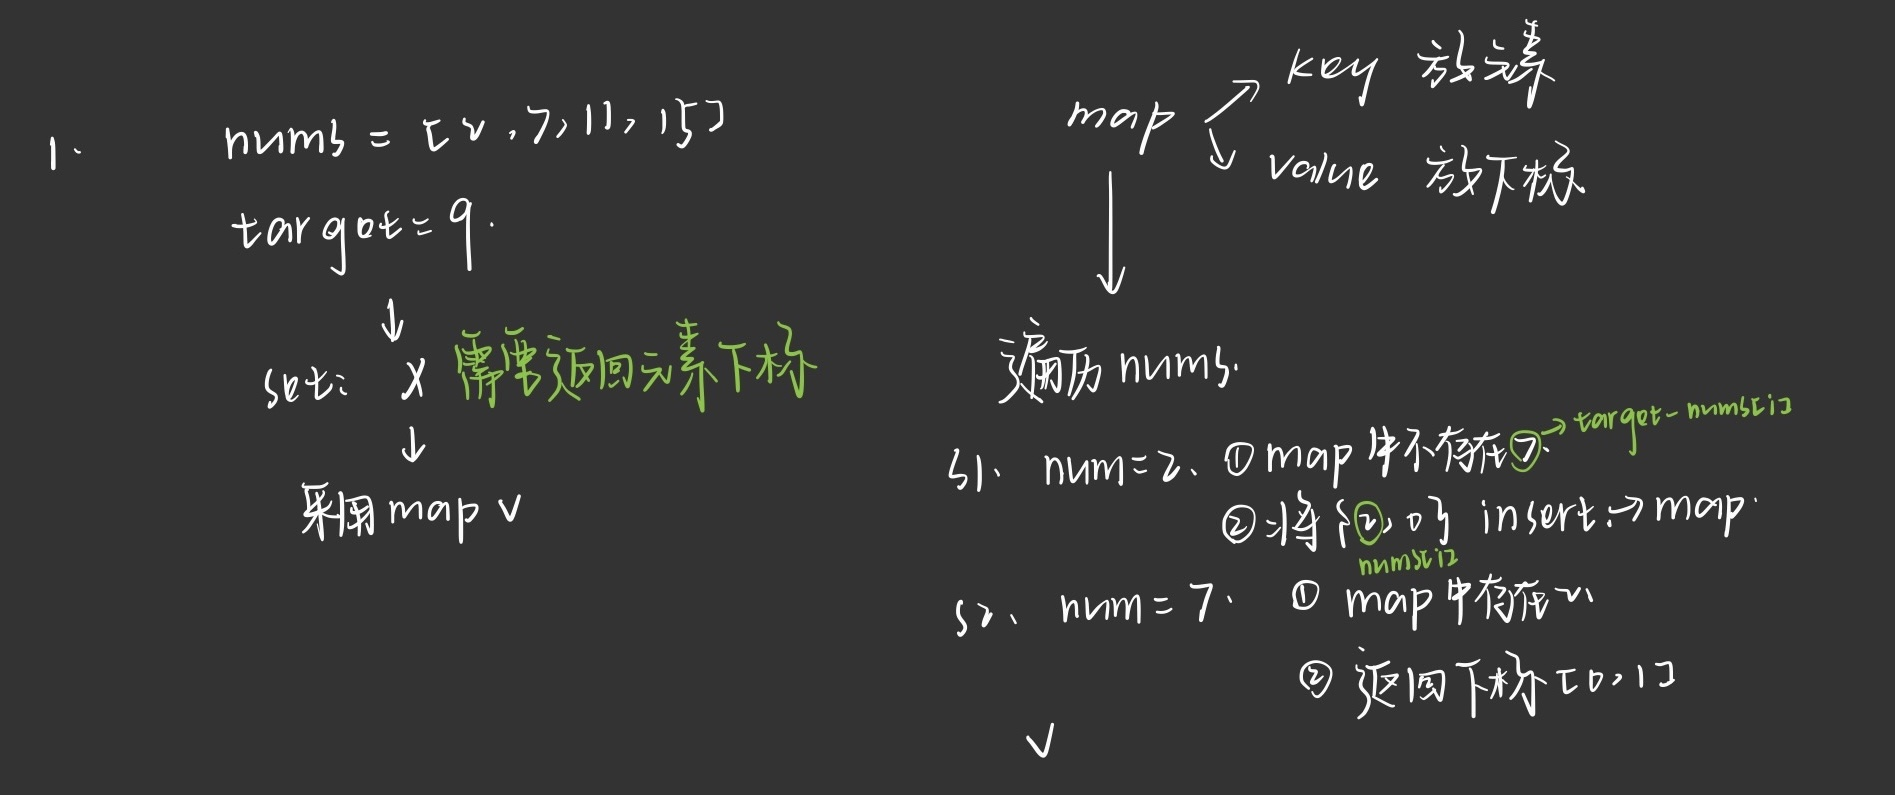 1.
nums = [2,7,11,15]
target = 9.
↓
set: X 需要返回元素下标
↓
采用map √
map
↗ key 放元素
↘ value 放下标
↓
遍历nums.
S1、 num=2、 ① map中不存在7. → target-nums[i]
② 将{2,0} insert.→map.
nums[i]
S2、 num=7. ① map中存在2.
② 返回下标[0,1]
√